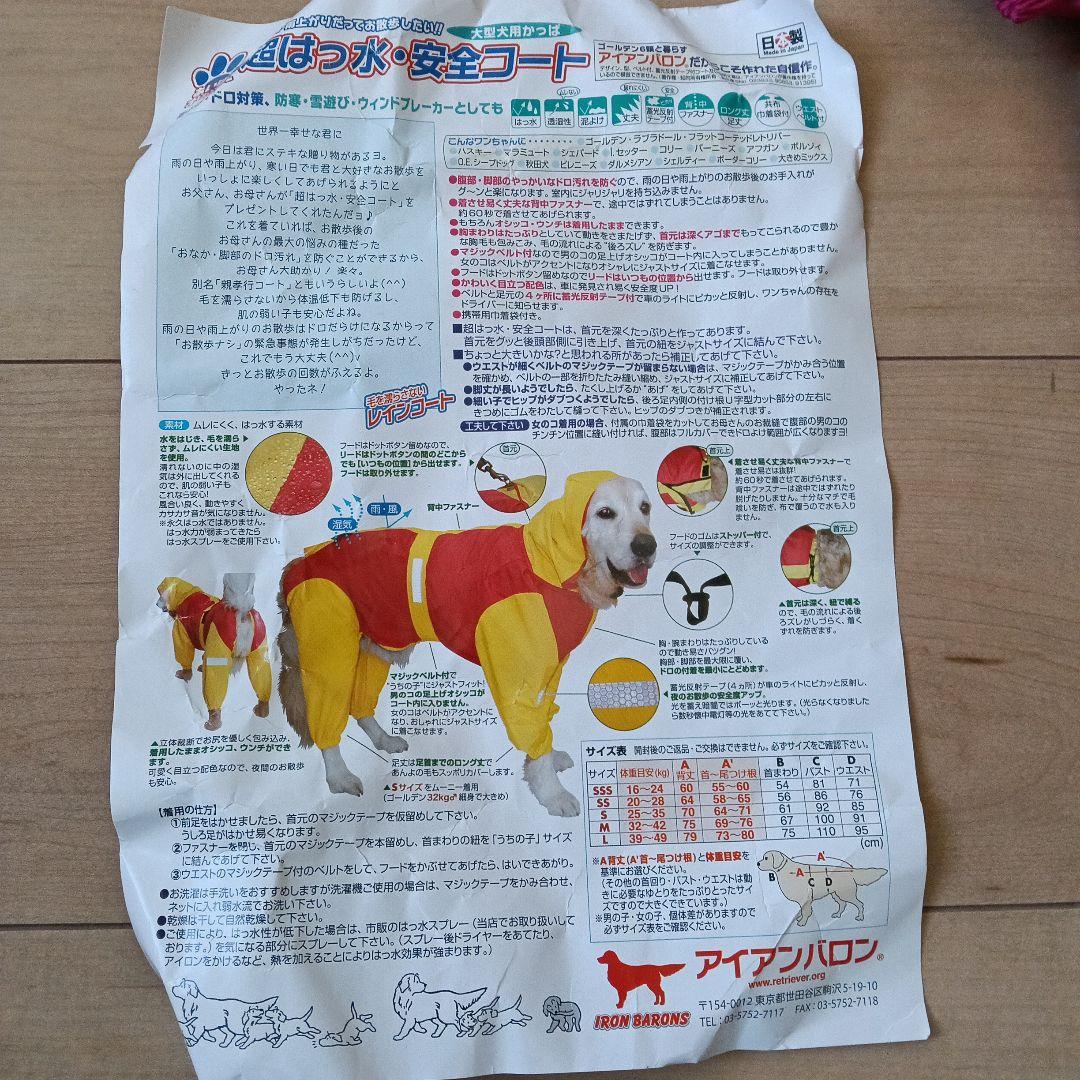 雨上がりだってお散歩したい!!
大型犬用かっぱ
超はっ水・安全コート
日本製
Made in Japan
ゴールデン6頭と暮らす
アイアンバロンだからこそ作れた自信作。
ドロ対策、防寒・雪遊び・ウィンドブレーカーとしても
はっ水
ムレない
透湿性
泥よけ
丈夫
安全
蓄光反射テープ付
背中ファスナー
ロング丈足丈
共布巾着袋付
ウエストベルト付
世界一幸せな君に
今日は君にステキな贈り物があるヨ。
雨の日や雨上がり、寒い日でも君と大好きなお散歩を
いっしょに楽しくしてあげられるようにと
お父さん、お母さんが「超はっ水・安全コート」を
プレゼントしてくれたんだョ♪
これを着ていれば、お散歩後の
お母さんの最大の悩みの種だった
「おなか・脚部のドロ汚れ」を防ぐことができるから、
お母さん大助かり! 楽々。
別名「親孝行コート」ともいうらしいよ(^^)
毛を濡らさないから体温低下も防げるし、
肌の弱い子も安心だよね。
雨の日や雨上がりのお散歩はドロだらけになるからって
「お散歩ナシ」の緊急事態が発生しがちだったけど、
これでもう大丈夫(^^)v
きっとお散歩の回数がふえるよ。
やったネ!
こんなワンちゃんに‥‥‥‥●ゴールデン・ラブラドール・フラットコーテッドレトリバー
●ハスキー ●マラミュート ●シェパード ●I.セッター ●コリー ●バーニーズ ●アフガン ●ボルゾィ
●O.E.シープドッグ ●秋田犬 ●ピレニーズ ●ダルメシアン ●シェルティー ●ボーダーコリー ●大きめミックス
●腹部・脚部のやっかいなドロ汚れを防ぐので、雨の日や雨上がりのお散歩後のお手入れが
グ〜ンと楽になります。室内にジャリジャリを持ち込みません。
●着させ易く丈夫な背中ファスナーで、途中ではずれてしまうことがありません。
約60秒で着させてあげられます。
●もちろんオシッコ・ウンチは着用したままできます。
●胸まわりはたっぷりとしていて動きをさまたげず、首元は深くアゴまでもってこられるので豊か
な胸毛も包みこみ、毛の流れによる"後ろズレ"を防ぎます。
●マジックベルト付なので男のコの足上げオシッコがコート内に入ってしまうことがありません。
女のコはベルトがアクセントになりオシャレにジャストサイズに着こなせます。
●フードはドットボタン留めなのでリードはいつもの位置から出せます。フードは取り外せます。
●かわいく目立つ配色は、車に発見され易く安全度UP!
●ベルトと足元の4ヶ所に蓄光反射テープ付で車のライトにピカッと反射し、ワンちゃんの存在を
ドライバーに知らせます。
●携帯用巾着袋付き。
■超はっ水・安全コートは、首元を深くたっぷりと作ってあります。
首元をグッと後頭部側に引き上げ、首元の紐をジャストサイズに結んで下さい。
■ちょっと大きいかな?と思われる所があったら補正してあげて下さい。
●ウエストが細くベルトのマジックテープが留まらない場合は、マジックテープがかみ合う位置
を確かめ、ベルトの一部を折りたたみ縫い縮め、ジャストサイズに補正してあげて下さい。
●脚丈が長いようでしたら、たくし上げるか"あげ"をしてあげて下さい。
●細い子でヒップがダブつくようでしたら、後ろ足内側の付け根U字型カット部分の左右に
きつめにゴムをわたして縫って下さい。ヒップのダブつきが補正されます。
工夫して下さい 女のコ着用の場合、付属の巾着袋をカットしてお母さんのお裁縫で腹部の男のコの
チンチン位置に縫い付ければ、腹部はフルカバーできドロよけ範囲が広くなりますヨ!
毛を濡らさない
レインコート
素材 ムレにくく、はっ水する素材
水をはじき、毛を濡ら
さず、ムレにくい生地
を使用。
濡れないのに中の湿
気は外に出してくれる
ので、肌の弱い子も
これなら安心!
風合い良く、動きやすく
カサカサ音が気になりません。
※永久はっ水ではありません。
はっ水力が弱まってきたら
はっ水スプレーをご使用下さい。
フードはドットボタン留めなので、
リードはドットボタンの間のどこから
でも[いつもの位置]から出せます。
フードは取り外せます。
首元
湿気
雨・風
背中ファスナー
首元上
◀着させ易く丈夫な背中ファスナーで
着させ易さは抜群!
約60秒で着させてあげられます。
背中ファスナーは途中ではずれたり
脱げたりしません。十分なマチで毛
喰いを防ぎ、布で覆うので水も入り
ません。
フードのゴムはストッパー付で、
サイズの調整ができます。
首元上
▲首元は深く、紐で縛る
ので、毛の流れによる後
ろズレがしづらく、着く
ずれを防ぎます。
胸・腕まわりはたっぷりしている
ので動き易さバツグン!
胸部・脚部を最大限に覆い、
ドロの付着を最小にとどめます。
蓄光反射テープ(4ヵ所)が車のライトにピカッと反射し、
夜のお散歩の安全度アップ。
光を蓄え暗闇ではボーッと光ります。(光らなくなりました
ら数秒懐中電灯等の光をあてて下さい。)
マジックベルト付で
"うちの子"にジャストフィット!
男のコの足上げオシッコが
コート内に入りません。
女のコはベルトがアクセントに
なり、おしゃれにジャストサイズ
に着こなせます。
足丈は足首までのロング丈で
あんよの毛もスッポリカバーします。
▲Sサイズをムーニー着用
(ゴールデン32kg♂細身で大きめ)
▲立体裁断でお尻を優しく包み込み、
着用したままオシッコ、ウンチができ
ます。
可愛く目立つ配色なので、夜間のお散歩
も安心。
サイズ表 開封後のご返品・ご交換はできません。必ずサイズをご確認下さい。
サイズ 体重目安(kg) A背丈 A'首〜尾つけ根 B首まわり Cバスト Dウエスト
SSS 16〜24 60 55〜60 54 81 71
SS 20〜28 64 58〜65 56 86 76
S 25〜35 70 64〜71 61 92 85
M 32〜42 75 69〜76 67 100 91
L 39〜49 79 73〜80 75 110 95
(cm)
※A背丈(A'首〜尾つけ根)と体重目安を
基準にお選びください。
(その他の首回り・バスト・ウエストは動
きに必要なゆとりをたっぷりとったサイ
ズですので大きくできています。)
※男の子・女の子、個体差がありますので
必ずサイズ表をご確認ください。
A'
B
A
C
D
【着用の仕方】
①前足をはかせましたら、首元のマジックテープを仮留めして下さい。
うしろ足がはかせ易くなります。
②ファスナーを閉じ、首元のマジックテープを本留めし、首まわりの紐を「うちの子」サイズ
に結んであげて下さい。
③ウエストのマジックテープ付のベルトをして、フードをかぶせてあげたら、はいできあがり。
●お洗濯は手洗いをおすすめしますが洗濯機ご使用の場合は、マジックテープをかみ合わせ、
ネットに入れ弱水流でお洗い下さい。
●乾燥は干して自然乾燥して下さい。
●ご使用により、はっ水性が低下した場合は、市販のはっ水スプレー(当店でお取り扱いして
おります。)を気になる部分にスプレーして下さい。(スプレー後ドライヤーをあてたり、
アイロンをかけるなど、熱を加えることによりはっ水効果が強まります。)
アイアンバロン®
www.retriever.org
IRON BARONS
〒154-0012 東京都世田谷区駒沢5-19-10
TEL:03-5752-7117 FAX:03-5752-7118